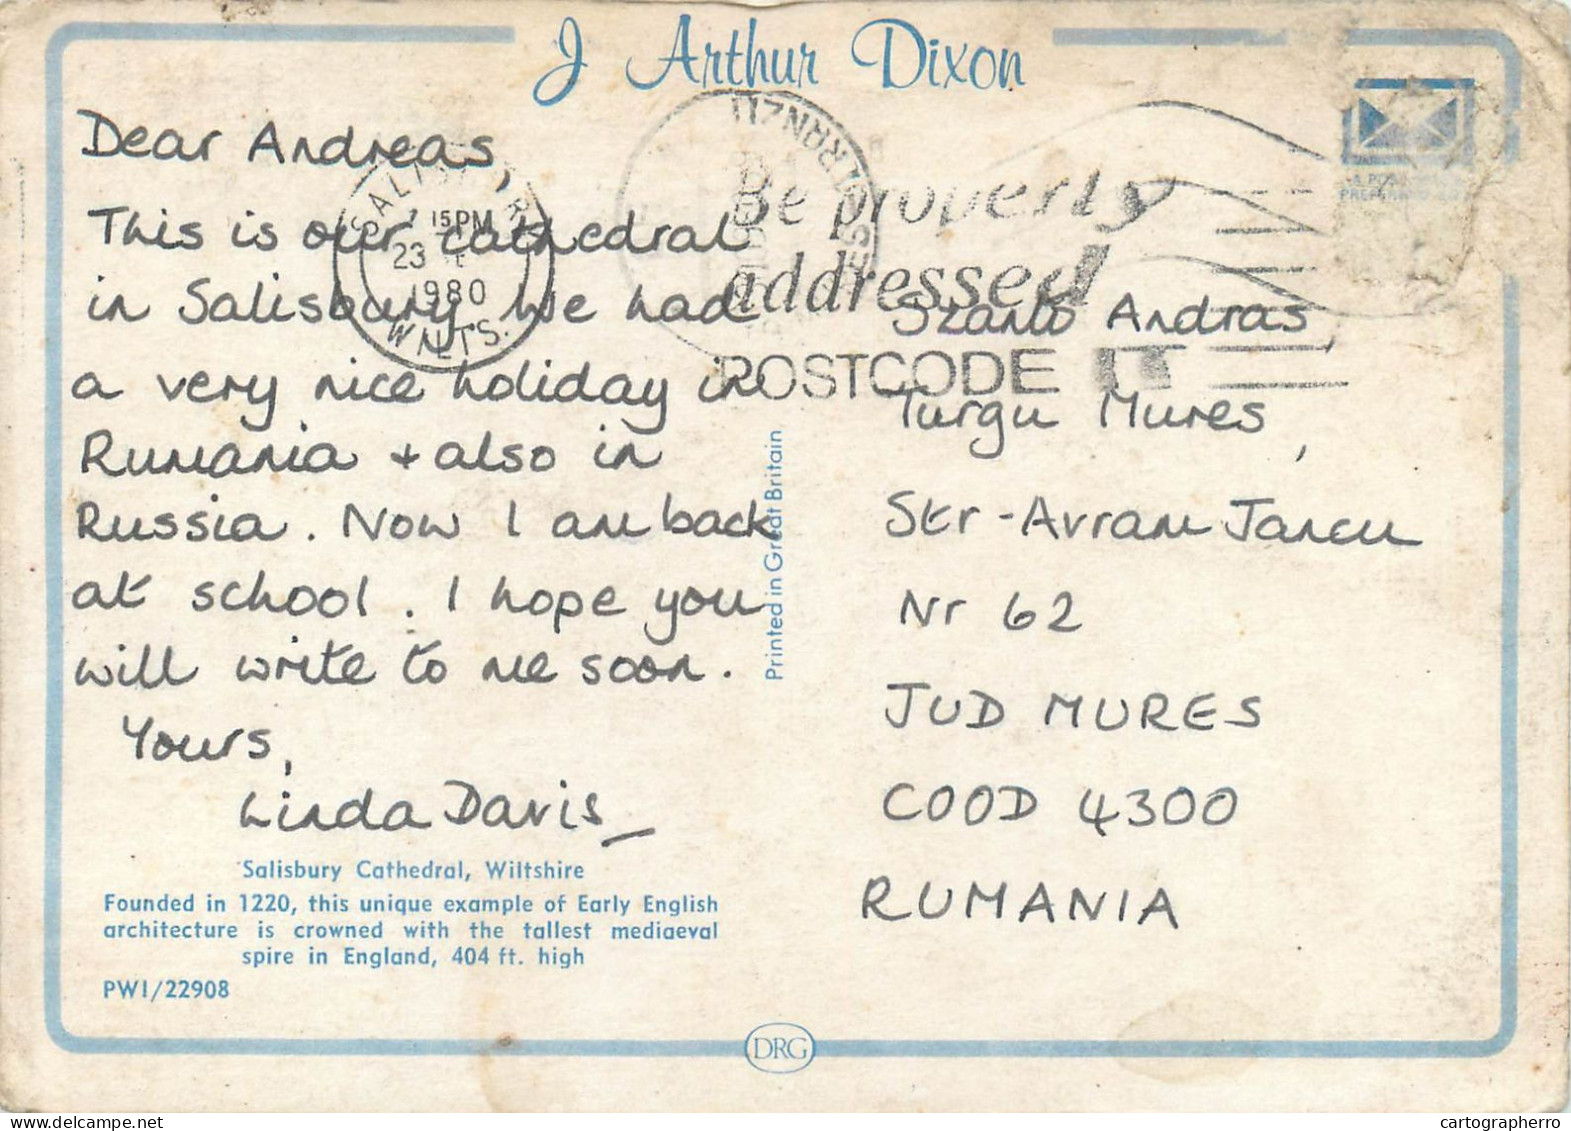 J Arthur Dixon
Dear Andreas,
This is our cathedral
in Salisbury We had
a very nice holiday in
Rumania + also in
Russia. Now I am back
at school. I hope you
will write to me soon.
Yours,
Linda Davis
SALISBURY
15PM
23
1980
WILTS.
Be properly
addressed
POSTCODE IT
Szanto Andras
Turgu Mures,
Str-Avram Jancu
Nr 62
JUD MURES
COOD 4300
RUMANIA
Printed in Great Britain
Salisbury Cathedral, Wiltshire
Founded in 1220, this unique example of Early English
architecture is crowned with the tallest mediaeval
spire in England, 404 ft. high
PWI/22908
DRG
cartographerro